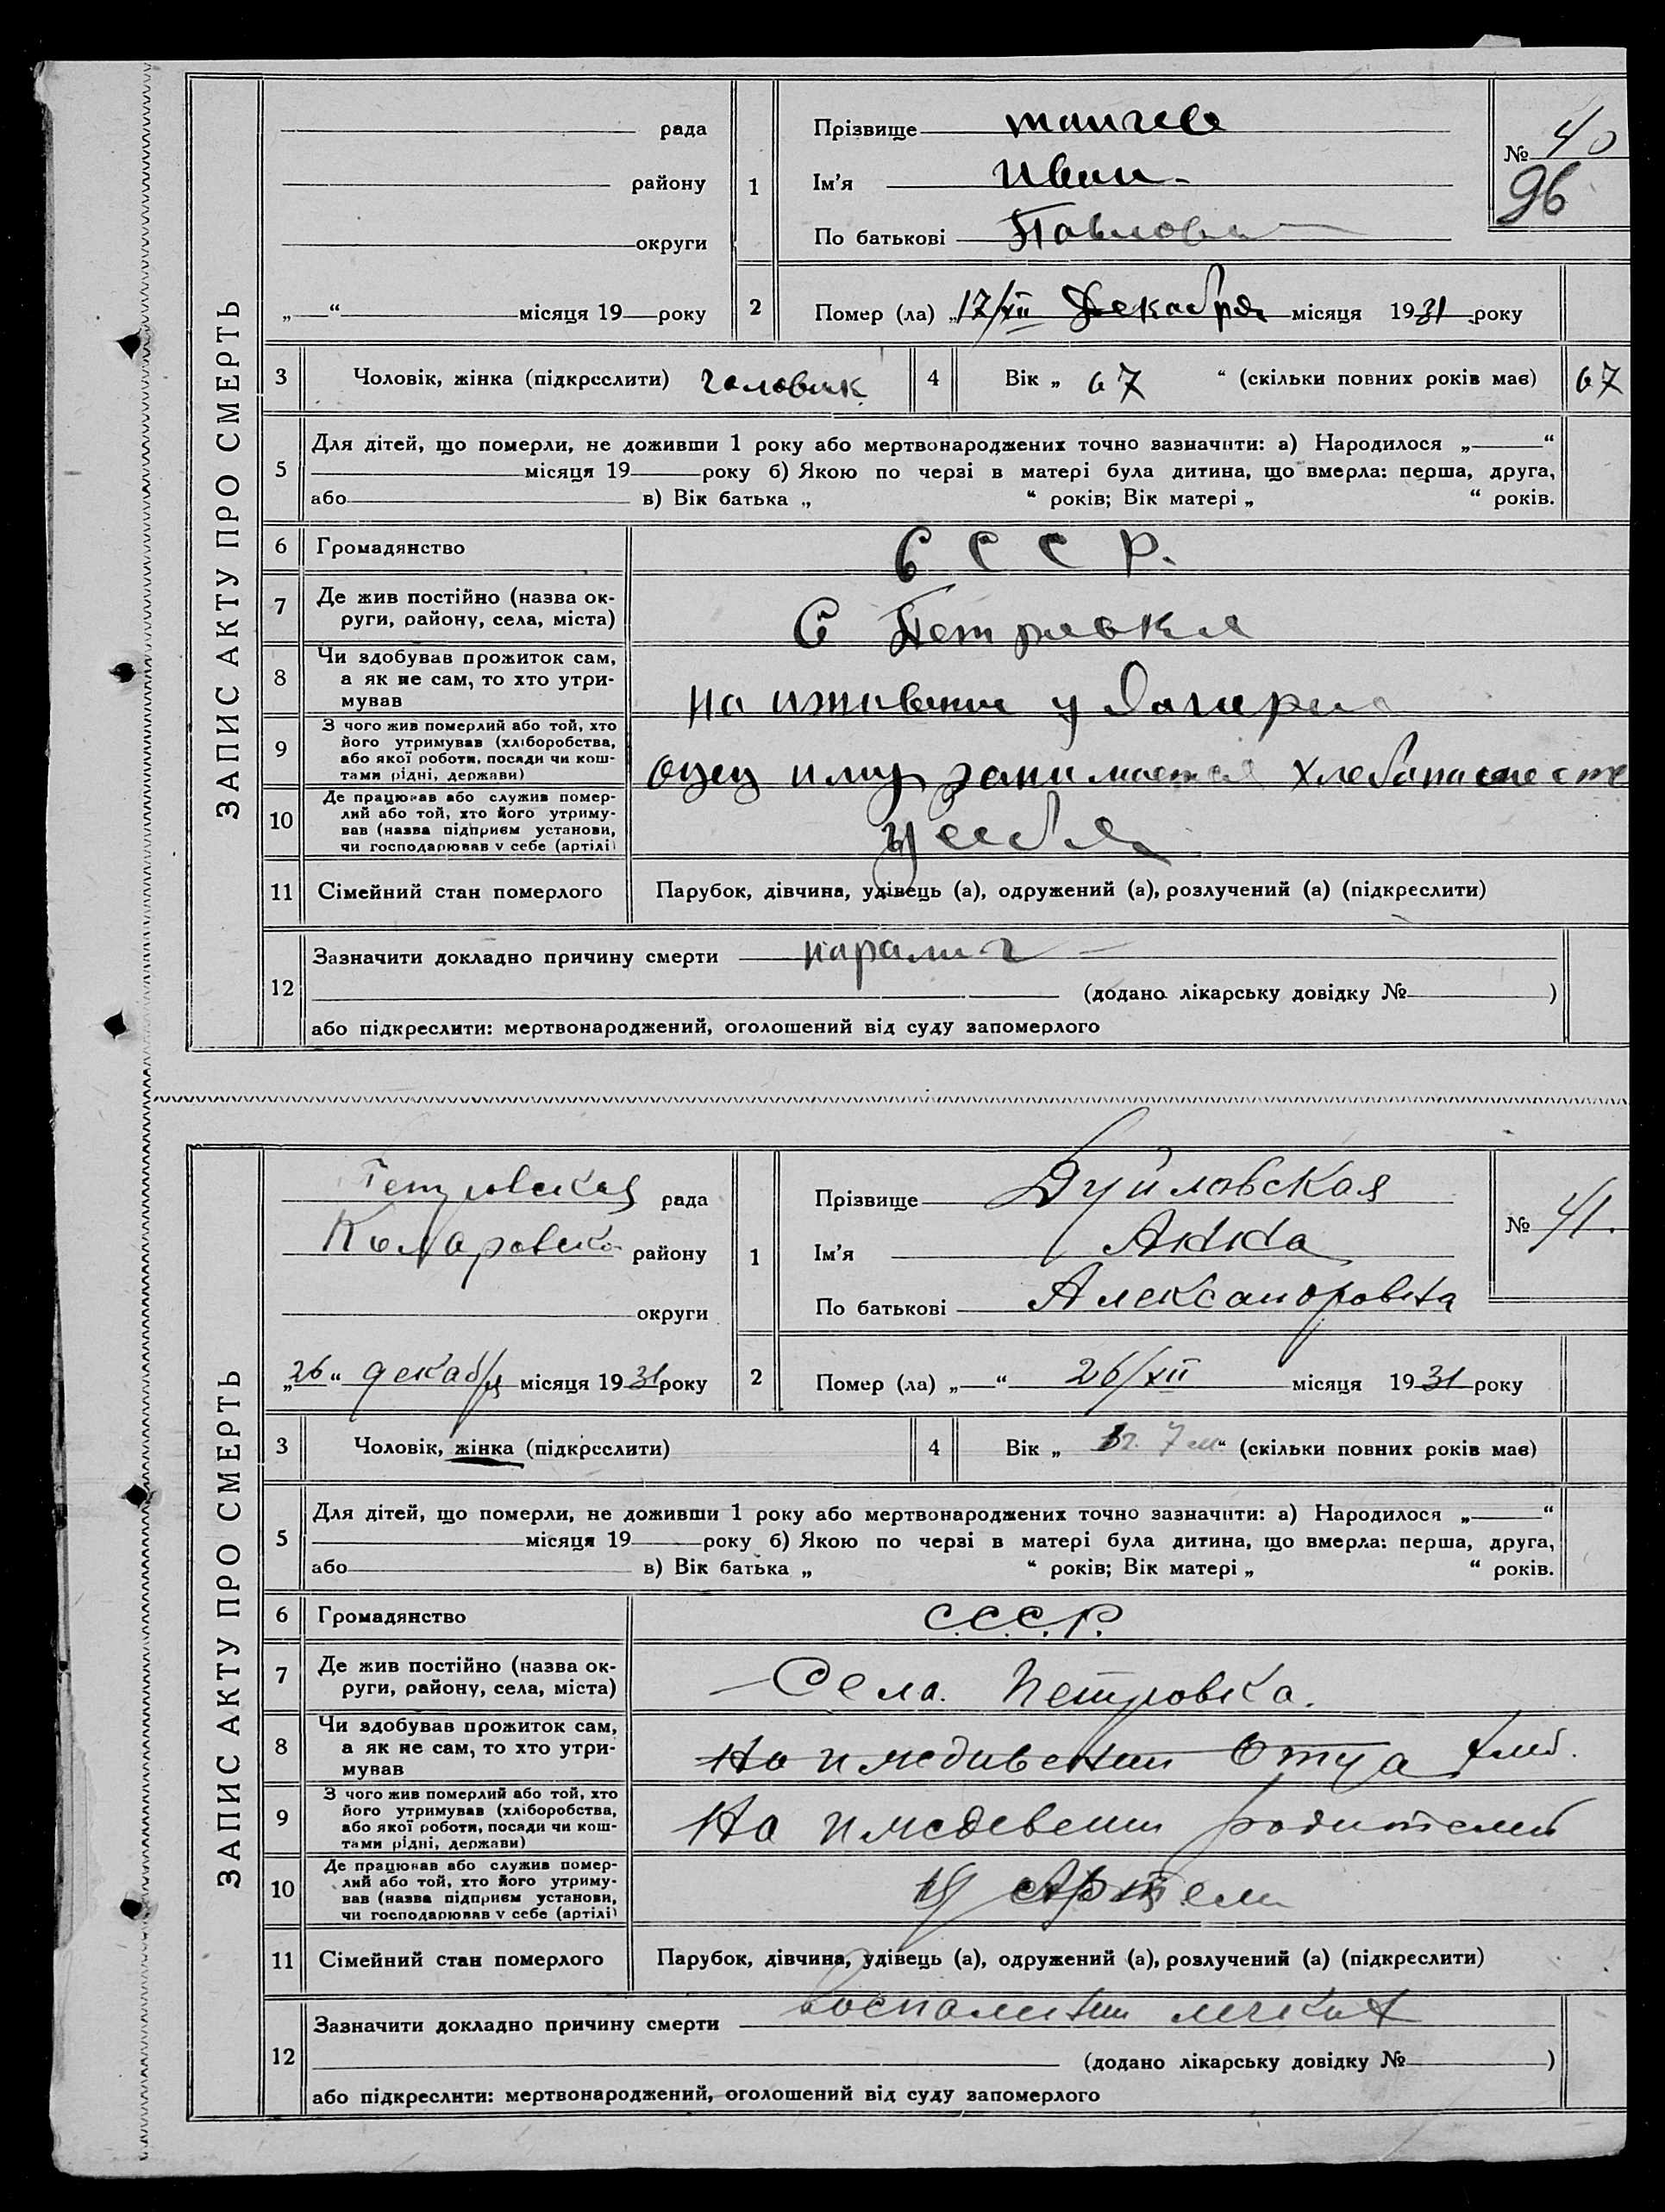 ЗАПИС АКТУ ПРО СМЕРТЬ
рада
району
округи
„ “ місяця 19 року
1
Прізвище
Ім'я Иван
По батькові
№ 40
96
2 Помер (ла) „17/XII Декабря місяця 1931 року
3 Чоловік, жінка (підкреслити) чоловик
4 Вік „ 67 “ (скільки повних років має) 67
5 Для дітей, що померли, не доживши 1 року або мертвонароджених точно зазначити: а) Народилося „ “
місяця 19 року б) Якою по черзі в матері була дитина, що вмерла: перша, друга,
або в) Вік батька „ “ років; Вік матері „ “ років.
6 Громадянство С С С Р.
7 Де жив постійно (назва ок-
руги, району, села, міста) С Петровка
8 Чи здобував прожиток сам,
а як не сам, то хто утри-
мував
на у
9 З чого жив померлий або той, хто
його утримував (хліборобства,
або якої роботи, посади чи кош-
тами рідні, держави)
занимается
10 Де працював або служив помер-
лий або той, хто його утриму-
вав (назва підприєм установи,
чи господарював у себе (артілі)
у себя
11 Сімейний стан померлого Парубок, дівчина, удівець (а), одружений (а), розлучений (а) (підкреслити)
12 Зазначити докладно причину смерти паралич
(додано лікарську довідку № )
або підкреслити: мертвонароджений, оголошений від суду запомерлого
ЗАПИС АКТУ ПРО СМЕРТЬ
Петровская рада
району
округи
„26“ декабря місяця 1931 року
1
Прізвище
Ім'я Анна
По батькові Александровна
№ 41.
2 Помер (ла) „ “ 26/XII місяця 1931 року
3 Чоловік, жінка (підкреслити)
4 Вік „ 7 м “ (скільки повних років має)
5 Для дітей, що померли, не доживши 1 року або мертвонароджених точно зазначити: а) Народилося „ “
місяця 19 року б) Якою по черзі в матері була дитина, що вмерла: перша, друга,
або в) Вік батька „ “ років; Вік матері „ “ років.
6 Громадянство С.С.С.Р.
7 Де жив постійно (назва ок-
руги, району, села, міста) Села. Петровка.
8 Чи здобував прожиток сам,
а як не сам, то хто утри-
мував
На Отца
9 З чого жив померлий або той, хто
його утримував (хліборобства,
або якої роботи, посади чи кош-
тами рідні, держави)
На родителей
10 Де працював або служив помер-
лий або той, хто його утриму-
вав (назва підприєм установи,
чи господарював у себе (артілі)
У Артели
11 Сімейний стан померлого Парубок, дівчина, удівець (а), одружений (а), розлучений (а) (підкреслити)
12 Зазначити докладно причину смерти
(додано лікарську довідку № )
або підкреслити: мертвонароджений, оголошений від суду запомерлого